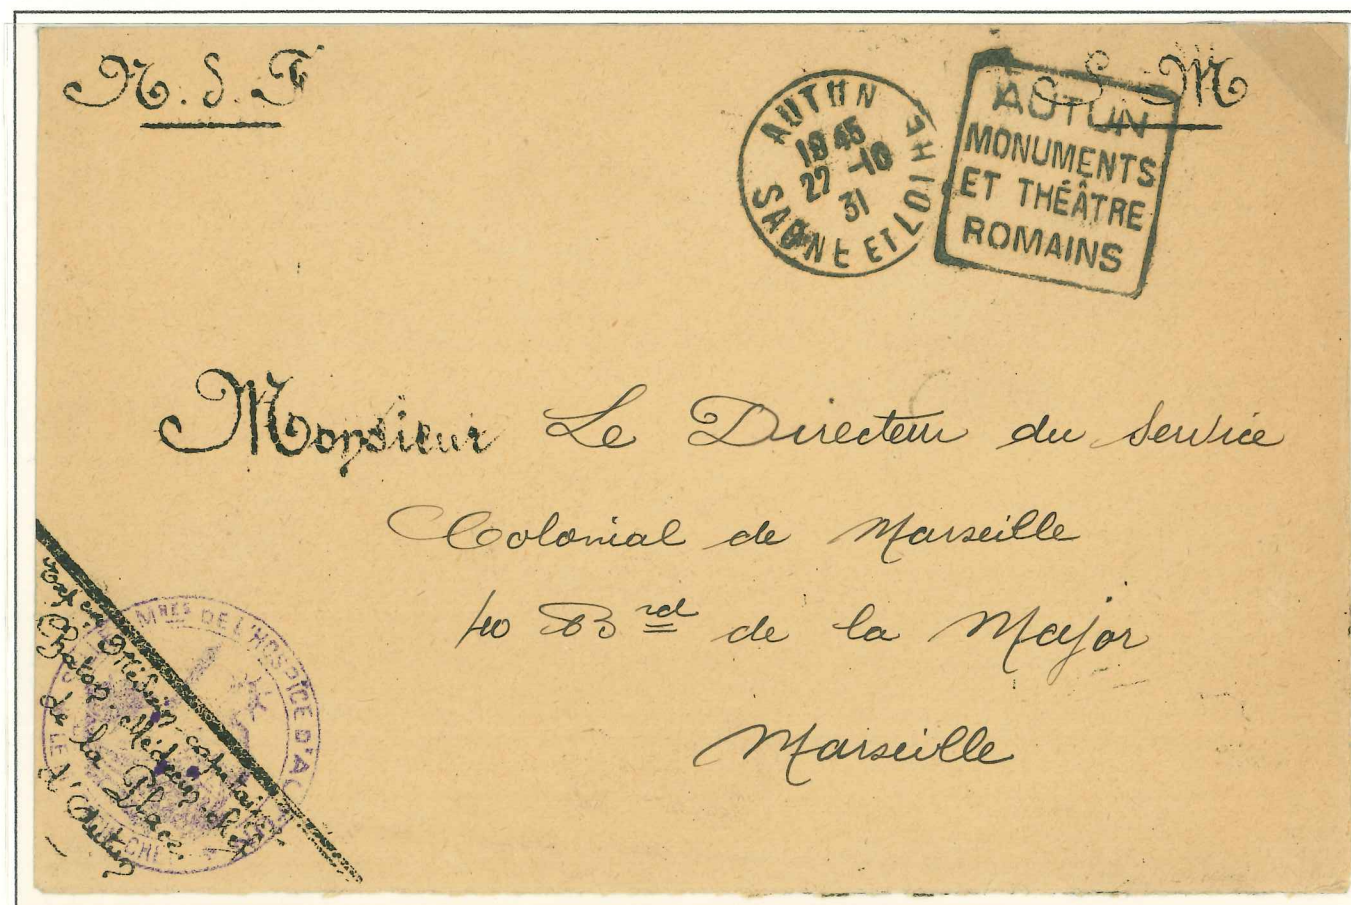 R. S. F
S. M
AUTUN
18 45
27 -10
31
SAONE ET LOIRE
AUTUN
MONUMENTS
ET THÉÂTRE
ROMAINS
Monsieur Le Directeur du Service
Colonial de Marseille
40 Brd de la Major
Marseille
Médecin capitaine
Médecin-chef
de la Place
d'Autun
DE L'HOSPICE D'AUTUN